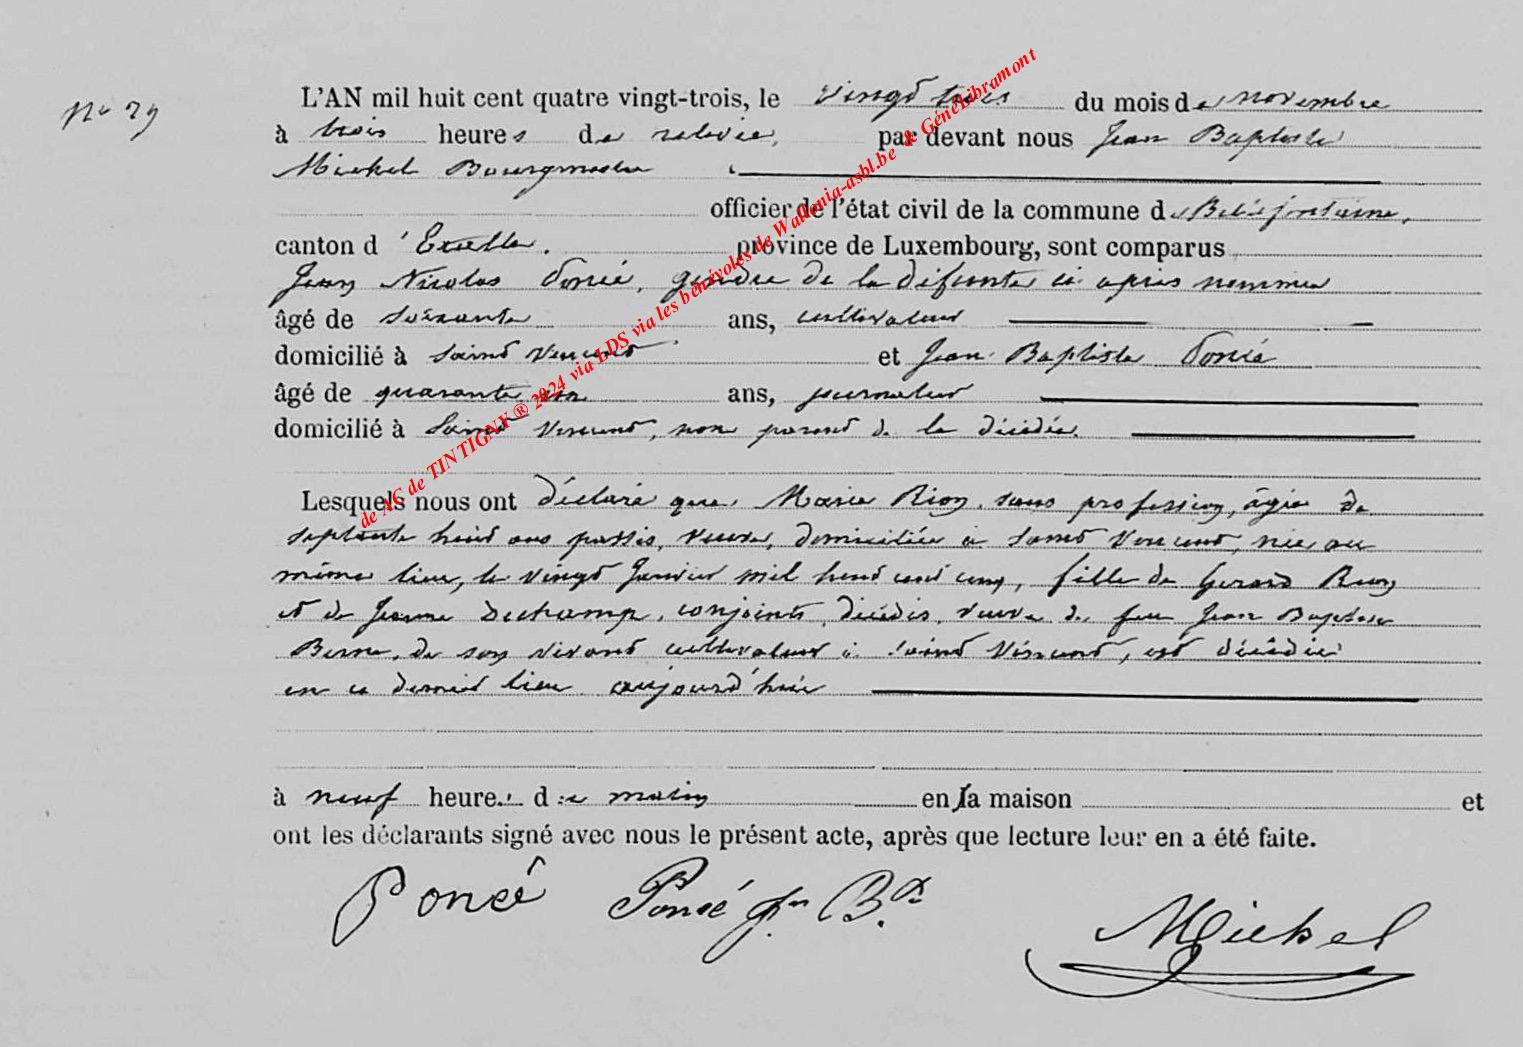 No 29
L'AN mil huit cent quatre vingt-trois, le vingt trois du mois de novembre
à trois heures de relevée, par devant nous Jean Baptiste
Michel Bourgmestre
officier de l'état civil de la commune de Bellefontaine,
canton d'Etalle, province de Luxembourg, sont comparus
Jean Nicolas Poncé, gendre de la défunte ci après nommée
âgé de soixante ans, cultivateur
domicilié à Saint Vincent et Jean Baptiste Poncé
âgé de quarante un ans, journalier
domicilié à Saint Vincent, non parent de la décédée.
Lesquels nous ont déclaré que Marie Rion, sans profession, âgée de
septante huit ans passés, veuve, domiciliée à Saint Vincent, née au
même lieu, le vingt Janvier mil huit cent cinq, fille de Gerard Rion
et de Jeanne Dechamp, conjoints, décédés, veuve de feu Jean Baptiste
de son vivant cultivateur à Saint Vincent, est décédée
en ce dernier lieu aujourd'hui
à neuf heures de matin en la maison et
ont les déclarants signé avec nous le présent acte, après que lecture leur en a été faite.
Poncé Poncé Jn Bte
Michel
de AC de TINTIGNY ® 2024 via LDS via les bénévoles de Wallonia-asbl.be & Généchibramont